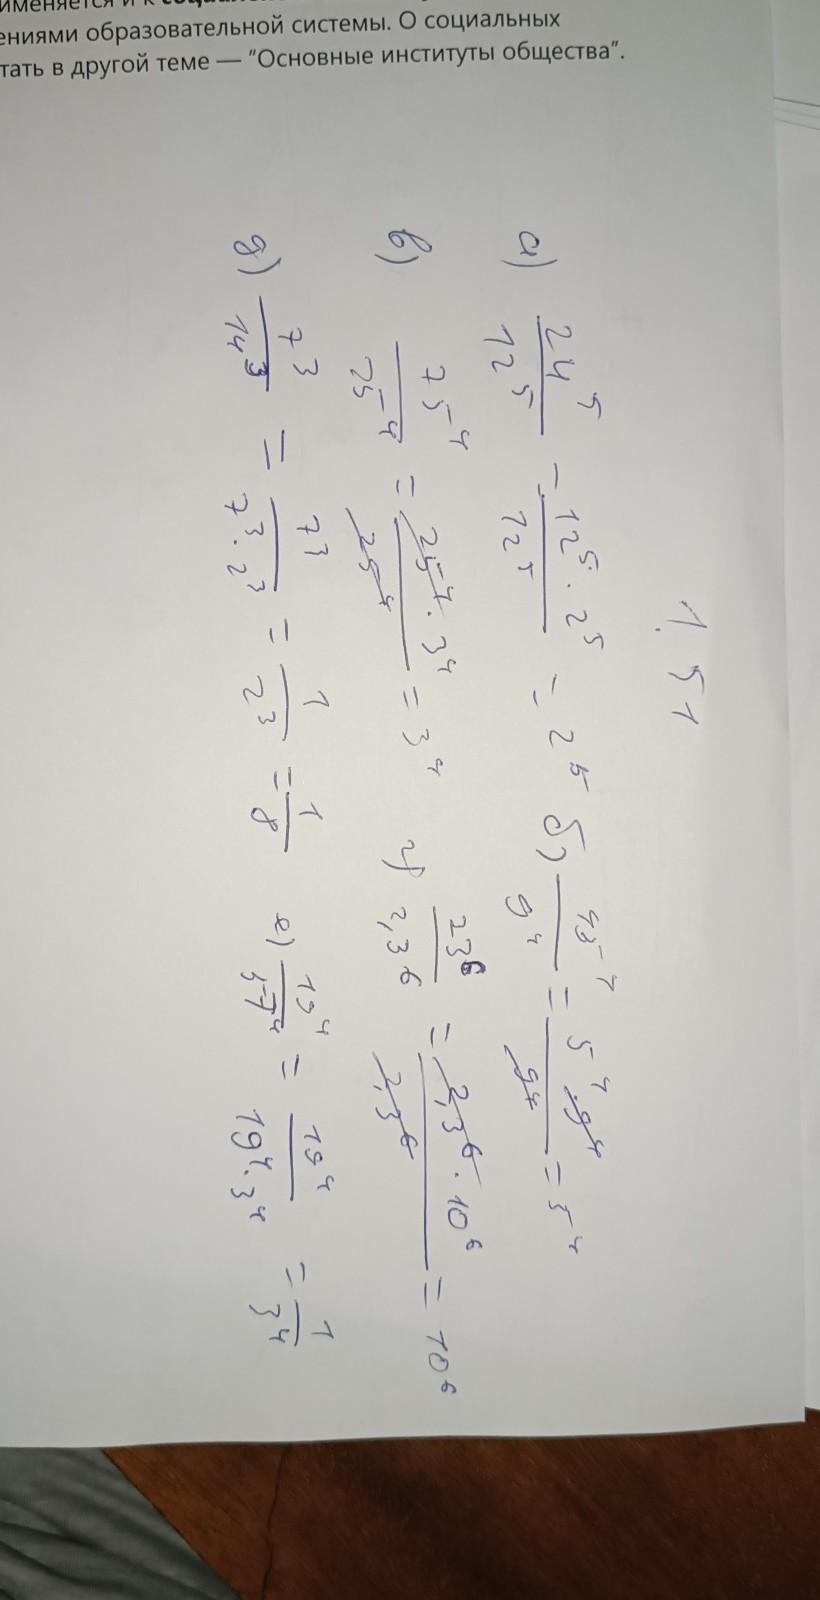 именяется и к
ениями образовательной системы. О социальных
тать в другой теме — “Основные институты общества”.
1.51
а) 24⁵/12⁵ = 12⁵·2⁵/12⁵ = 2⁵ б) 45⁴/9⁴ = 5⁴·9⁴/9⁴ = 5⁴
в) 75⁴/25⁴ = 25⁴·3⁴/25⁴ = 3⁴ г) 23⁶/2,3⁶ = 2,3⁶·10⁶/2,3⁶ = 10⁶
д) 7³/14³ = 7³/7³·2³ = 1/2³ = 1/8 е) 19⁴/57⁴ = 19⁴/19⁴·3⁴ = 1/3⁴